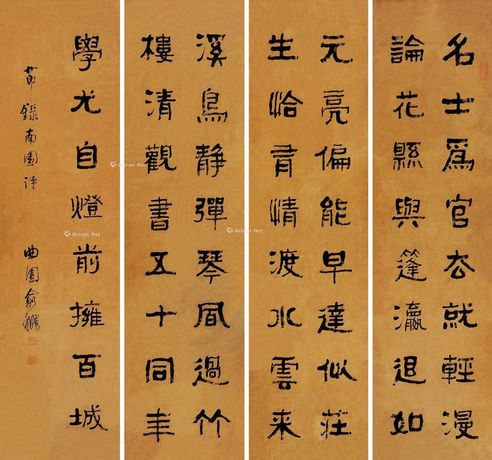 名士爲官去就輕漫
論花縣與蓬瀛退如
元亮偏能早達似莊
生恰有情渡水雲来
溪鳥靜彈琴風過竹
樓清觀書五十同年
學尤自燈前擁百城
錄南園詩 曲園俞樾
Artron.Net
Artron.Net